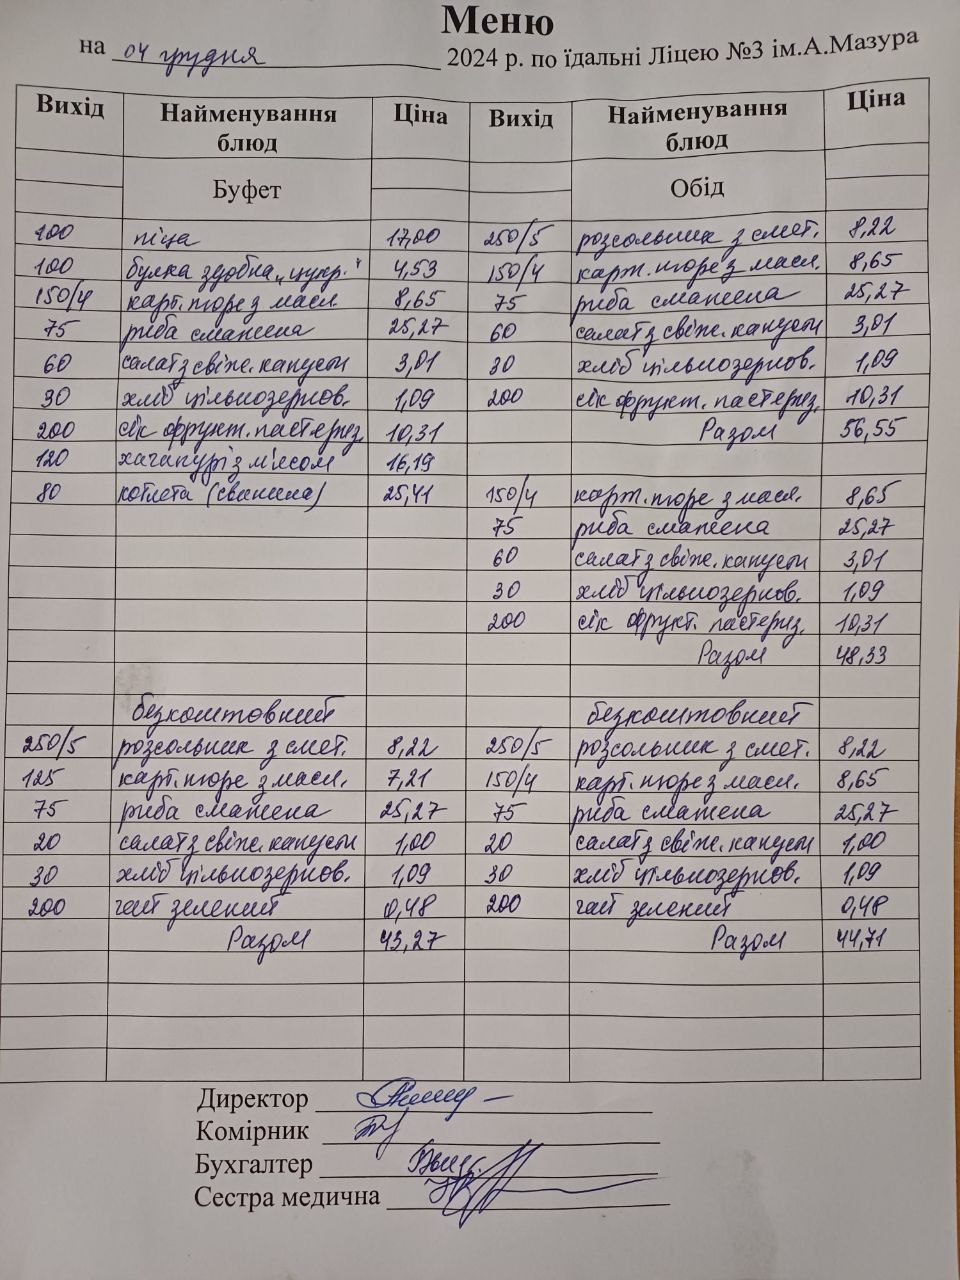 Меню
на 04 грудня 2024 р. по їдальні Ліцею №3 ім.А.Мазура
Вихід Найменування блюд Ціна Вихід Найменування блюд Ціна
Буфет Обід
100 піца 17,00 250/5 розсольник з смет. 8,22
100 булка здобна „цукр.“ 4,53 150/4 карт. пюре з масл. 8,65
150/4 карт. пюре з масл 8,65 75 риба смажена 25,27
75 риба смажена 25,27 60 салат з свіж. капусти 3,01
60 салат з свіж. капусти 3,01 30 хліб цільнозернов. 1,09
30 хліб цільнозернов. 1,09 200 сік фрукт. пастериз. 10,31
200 сік фрукт. пастериз. 10,31 Разом 56,55
120 хачапурі з м'ясом 16,19
80 котлета (свинина) 25,41 150/4 карт. пюре з масл. 8,65
75 риба смажена 25,27
60 салат з свіж. капусти 3,01
30 хліб цільнозернов. 1,09
200 сік фрукт. пастериз. 10,31
Разом 48,33
безкоштовний безкоштовний
250/5 розсольник з смет. 8,22 250/5 розсольник з смет. 8,22
125 карт. пюре з масл. 7,21 150/4 карт. пюре з масл. 8,65
75 риба смажена 25,27 75 риба смажена 25,27
20 салат з свіж. капусти 1,00 20 салат з свіж. капусти 1,00
30 хліб цільнозернов. 1,09 30 хліб цільнозернов. 1,09
200 чай зелений 0,48 200 чай зелений 0,48
Разом 43,27 Разом 44,71
Директор
Комірник
Бухгалтер
Сестра медична